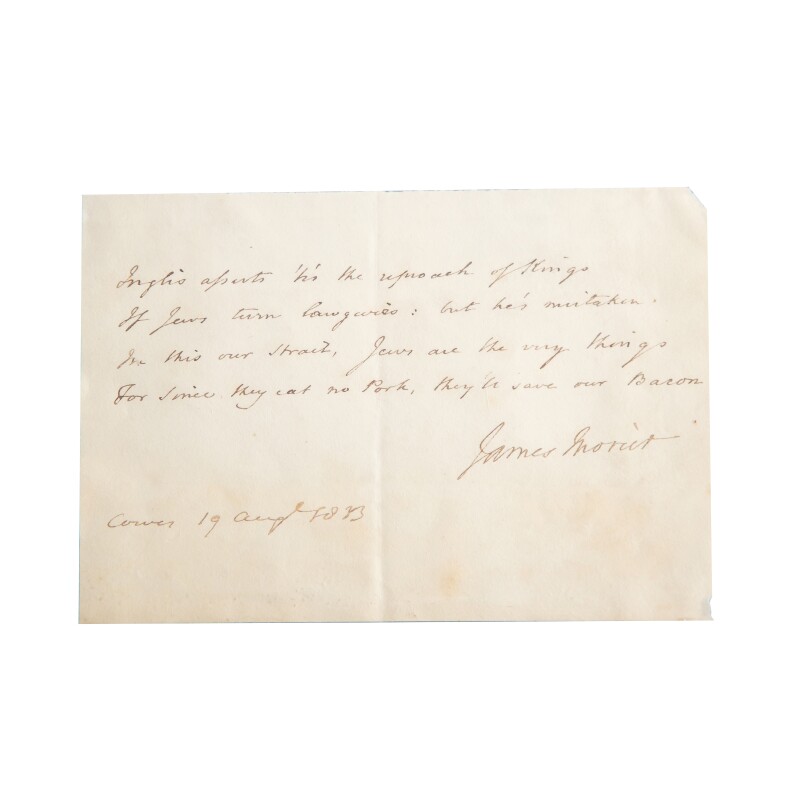 Inglis asserts 'tis the reproach of Kings
If Jews turn lawgivers: but he's mistaken.
In this our Strait, Jews are the very things
For since they eat no Pork, they'll save our Bacon
James Morier
Cowes 19 Augt. 1833